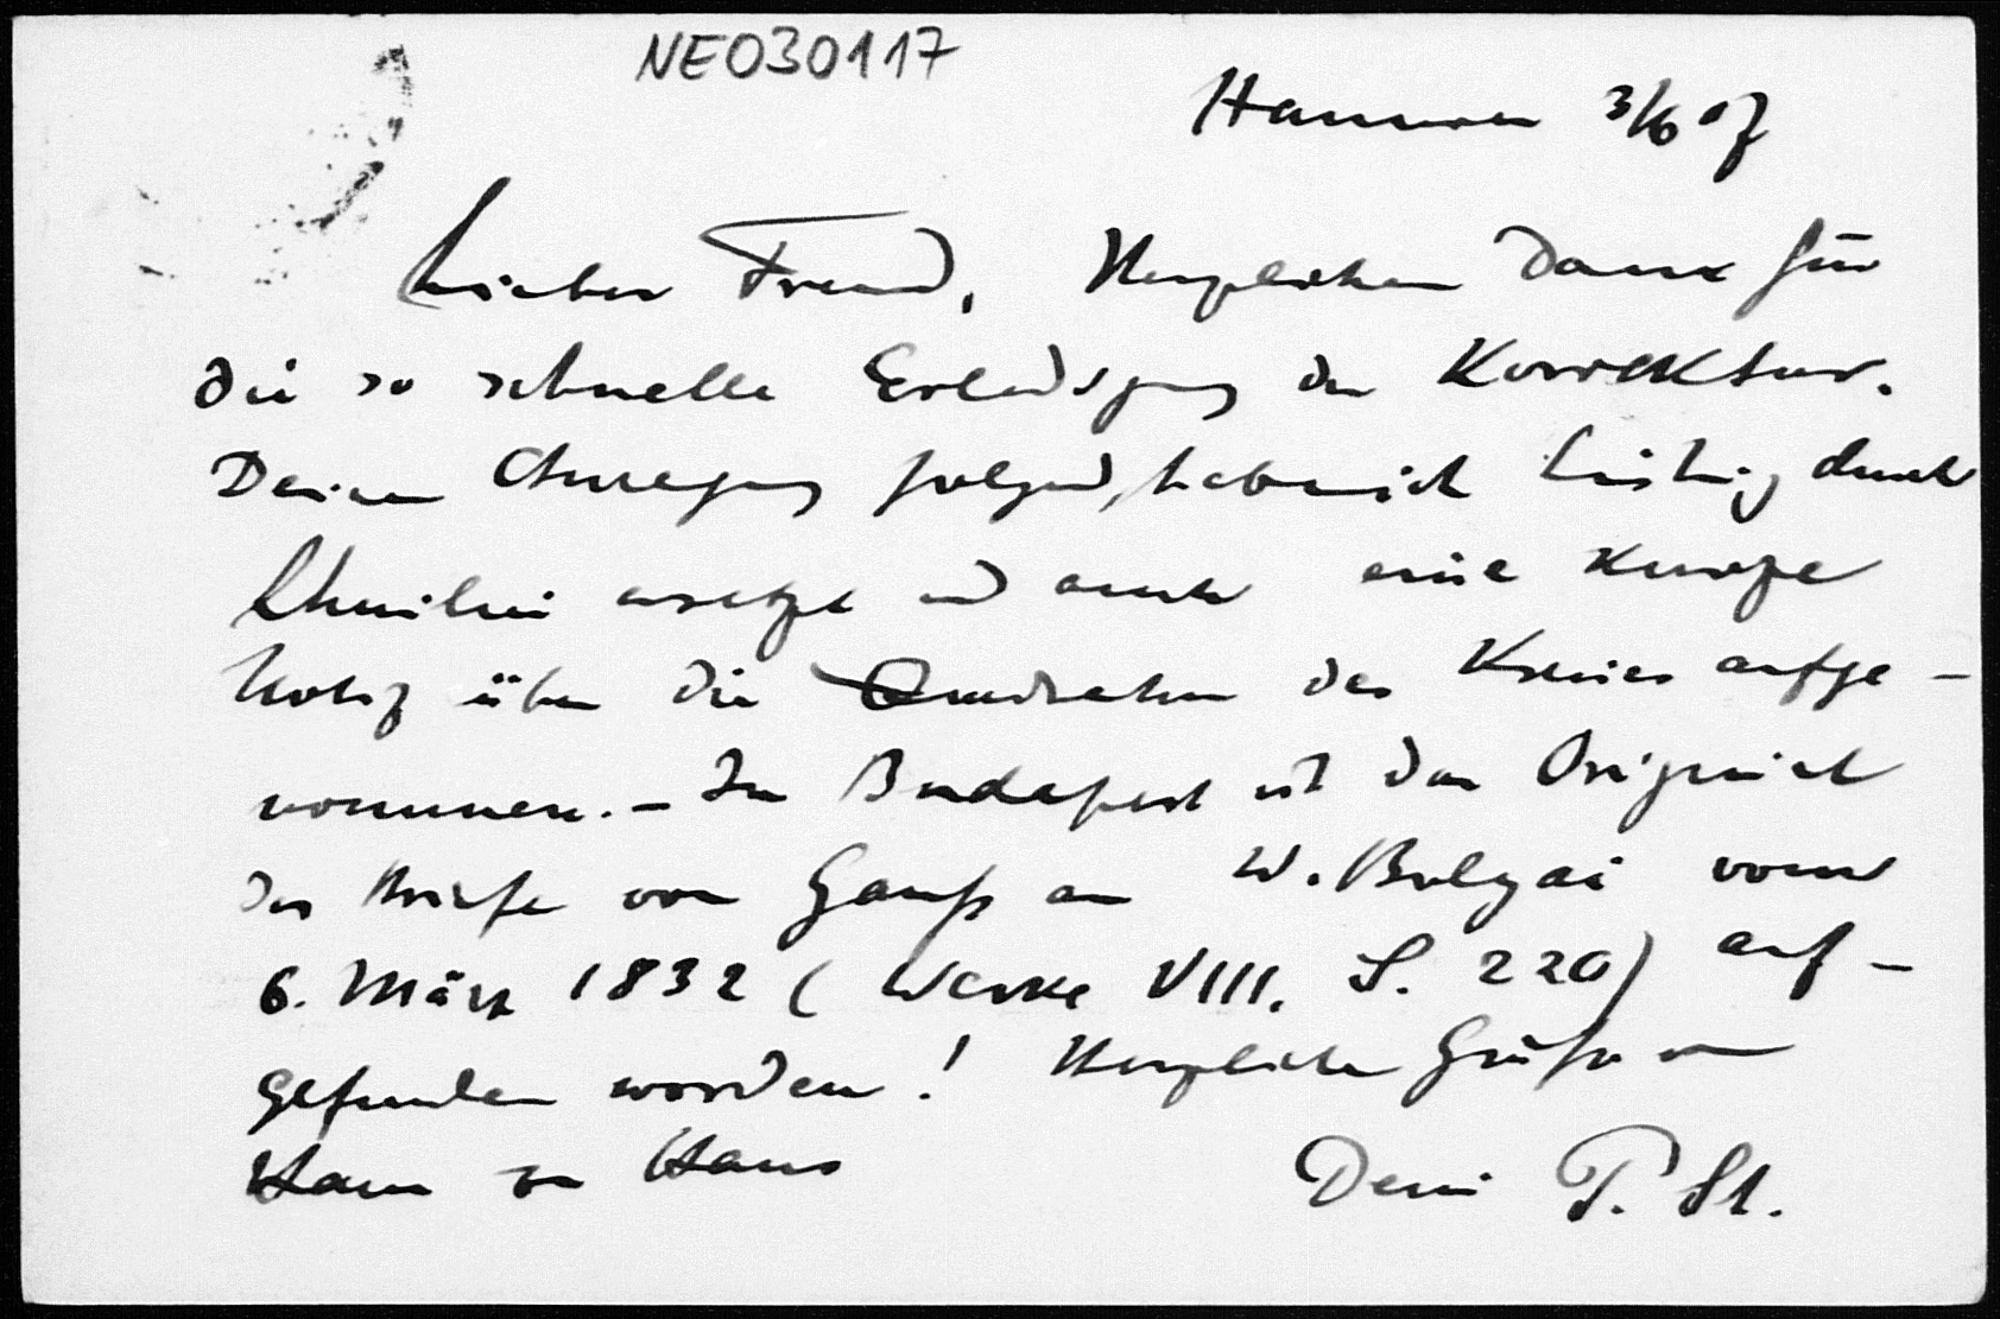 NE030117
Hannover 3/6 07
Lieber Freund, Herzlichen Dank für
die so schnelle Erledigung der Korrektur.
Deiner Anregung folgend, habe ich durch
ersetzt und auch eine kurze
Notiz über die Quadratur des Kreises aufge-
nommen. - In Budapest ist das Original
des Briefes von Gauß an W. Bolyai vom
6. März 1832 (Werke VIII. S. 220) auf-
gefunden worden! Herzliche Grüße von
Haus zu Haus
Dein P. St.